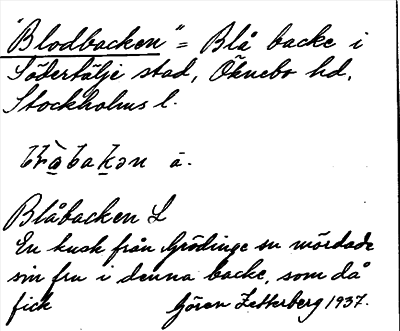 "Blodbacken" = Blå backe i
Södertälje stad, Öknebo hd,
Stockholms l.
bakən
Blåbacken L
En kusk från Grödinge sn mördade
sin fru i denna backe, som då
fick
Gören Zetterberg 1937.